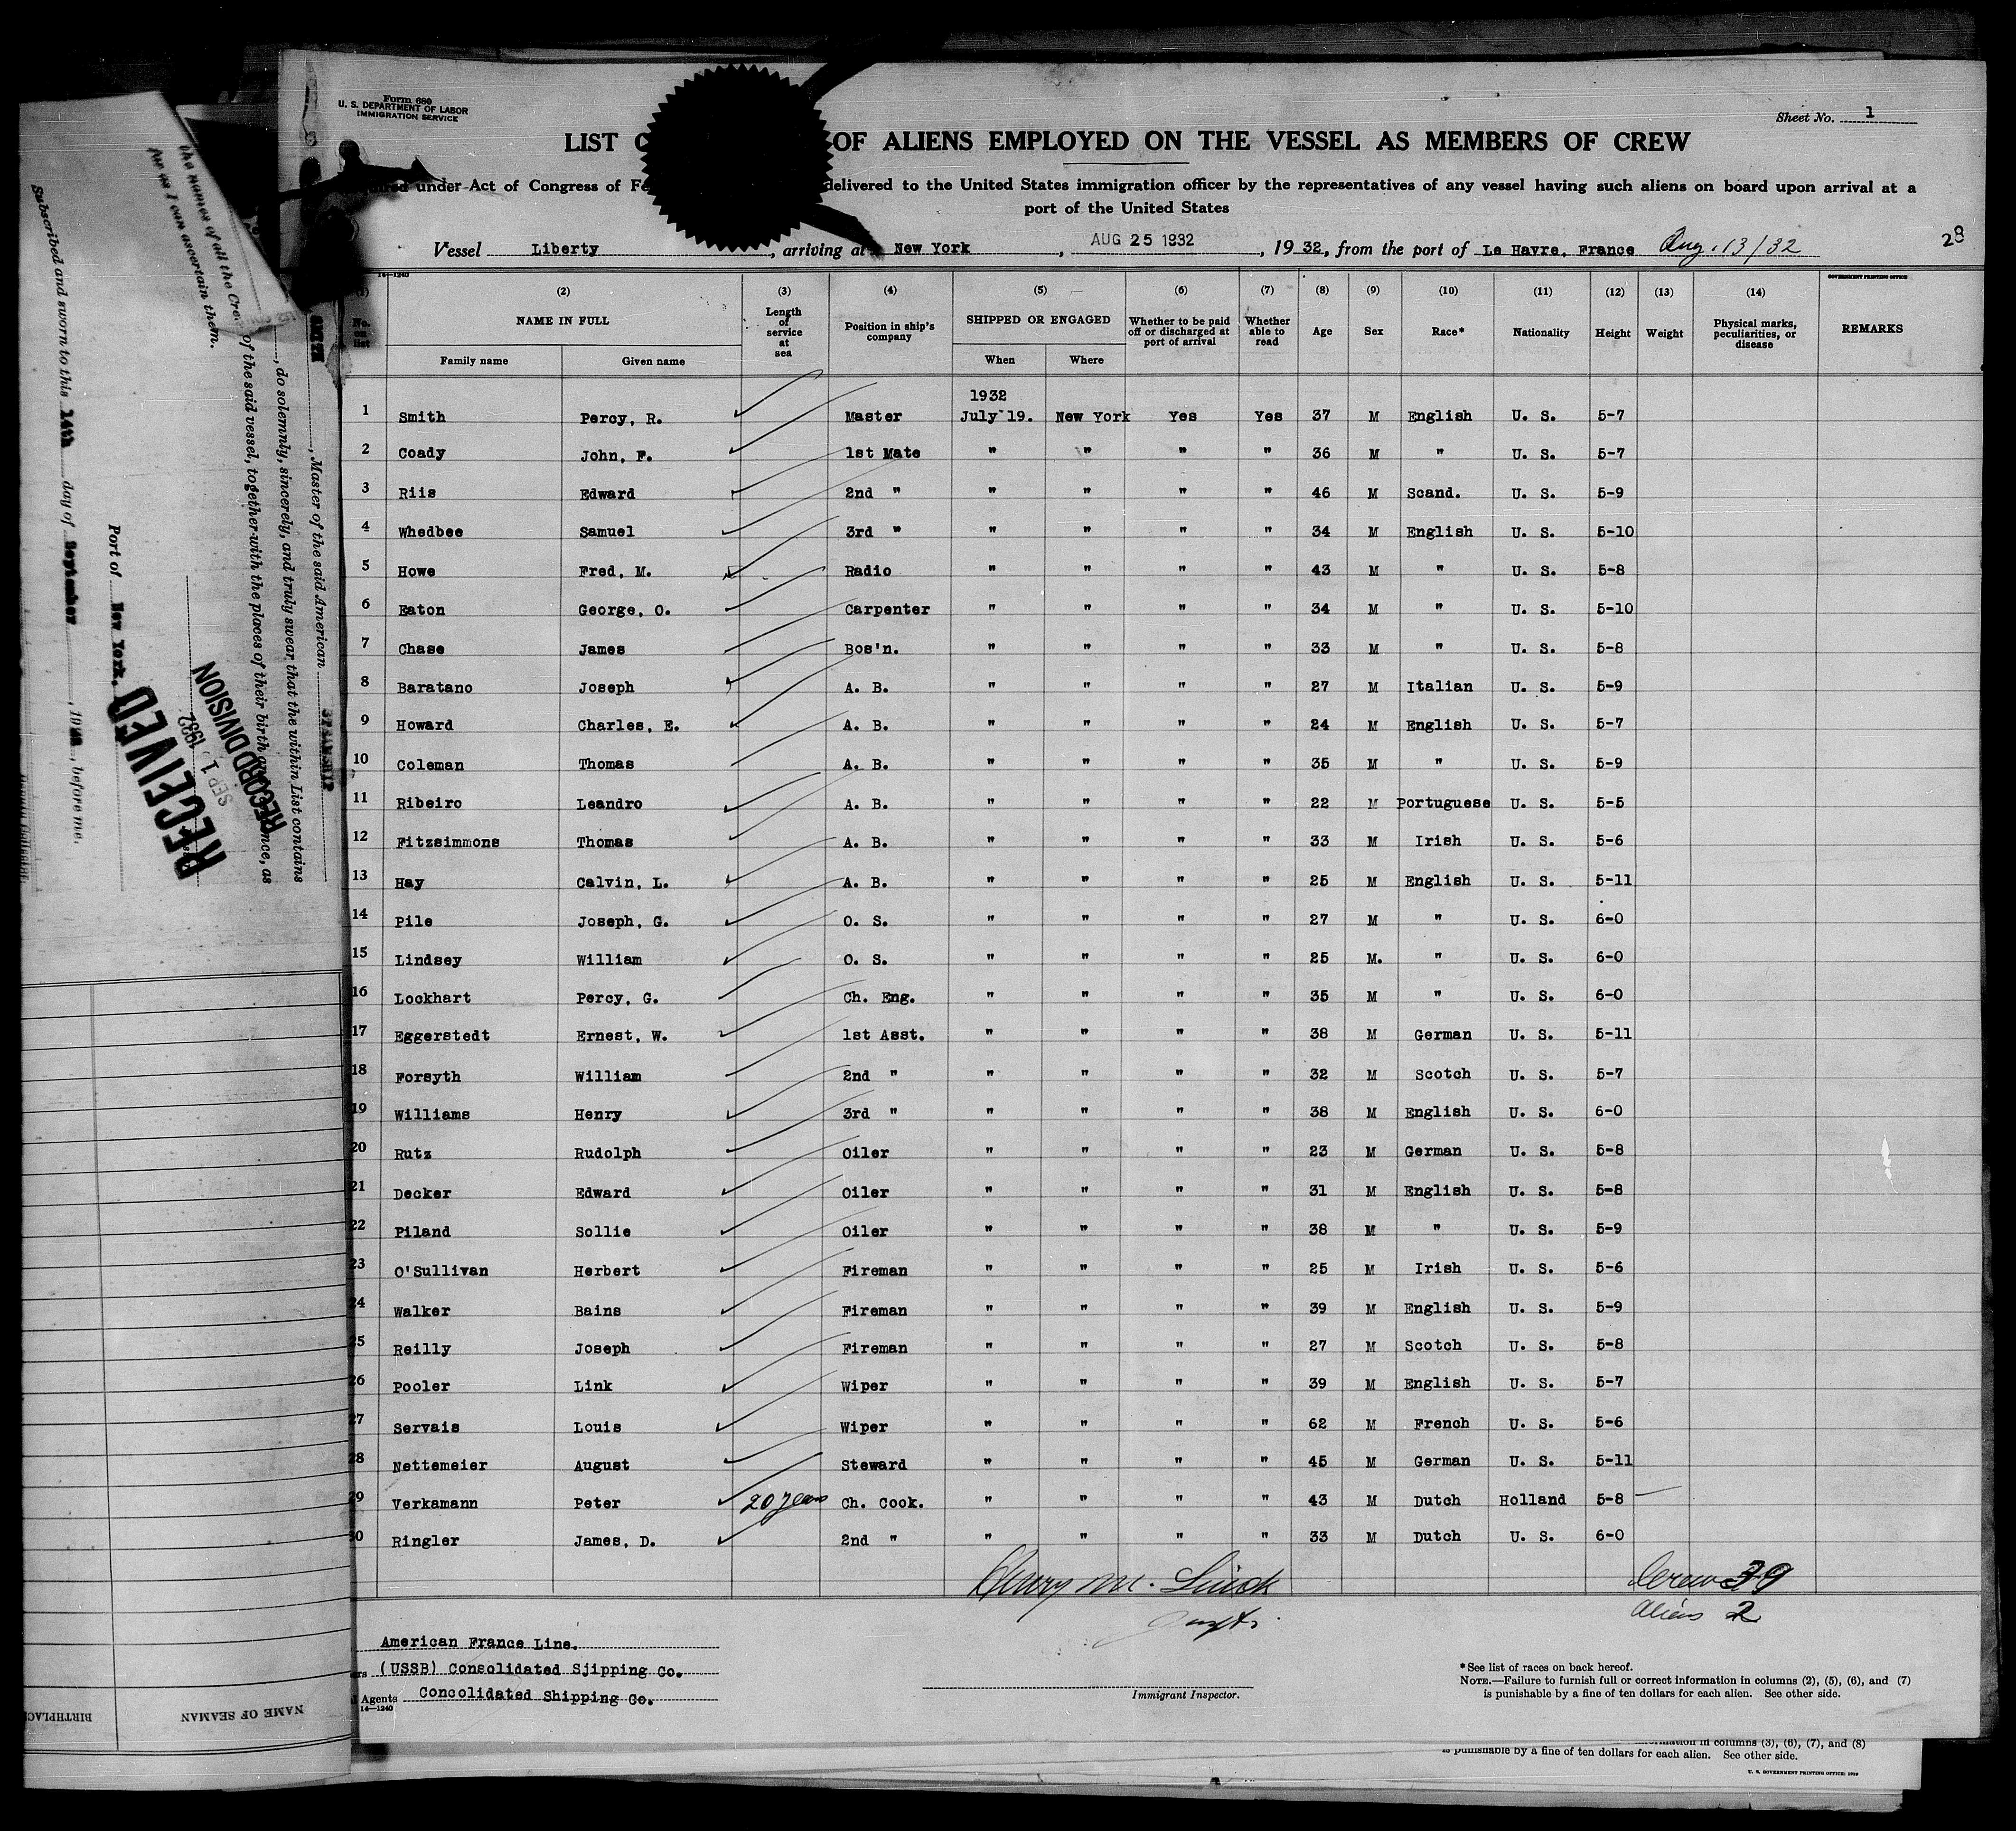 Form 680
U. S. DEPARTMENT OF LABOR
IMMIGRATION SERVICE
Sheet No. 1
LIST OF ALIENS EMPLOYED ON THE VESSEL AS MEMBERS OF CREW
under Act of Congress of delivered to the United States immigration officer by the representatives of any vessel having such aliens on board upon arrival at a
port of the United States
Vessel Liberty, arriving at New York, AUG 25 1932, 1932, from the port of Le Havre, France Aug. 13/32
28
14—1240
GOVERNMENT PRINTING OFFICE
(1) No. on list (2) NAME IN FULL Family name Given name (3) Length of service at sea (4) Position in ship's company (5) SHIPPED OR ENGAGED When Where (6) Whether to be paid off or discharged at port of arrival (7) Whether able to read (8) Age (9) Sex (10) Race* (11) Nationality (12) Height (13) Weight (14) Physical marks, peculiarities, or disease REMARKS
1932
1 Smith Percy, R. Master July 19. New York Yes Yes 37 M English U. S. 5-7
2 Coady John, F. 1st Mate " " " " 36 M " U. S. 5-7
3 Riis Edward 2nd " " " " " 46 M Scand. U. S. 5-9
4 Whedbee Samuel 3rd " " " " " 34 M English U. S. 5-10
5 Howe Fred, M. Radio " " " " 43 M " U. S. 5-8
6 Eaton George, O. Carpenter " " " " 34 M " U. S. 5-10
7 Chase James Bos'n. " " " " 33 M " U. S. 5-8
8 Baratano Joseph A. B. " " " " 27 M Italian U. S. 5-9
9 Howard Charles, E. A. B. " " " " 24 M English U. S. 5-7
10 Coleman Thomas A. B. " " " " 35 M " U. S. 5-9
11 Ribeiro Leandro A. B. " " " " 22 M Portuguese U. S. 5-5
12 Fitzsimmons Thomas A. B. " " " " 33 M Irish U. S. 5-6
13 Hay Calvin, L. A. B. " " " " 25 M English U. S. 5-11
14 Pile Joseph, G. O. S. " " " " 27 M " U. S. 6-0
15 Lindsey William O. S. " " " " 25 M. " U. S. 6-0
16 Lockhart Percy, G. Ch. Eng. " " " " 35 M " U. S. 6-0
17 Eggerstedt Ernest, W. 1st Asst. " " " " 38 M German U. S. 5-11
18 Forsyth William 2nd " " " " " 32 M Scotch U. S. 5-7
19 Williams Henry 3rd " " " " " 38 M English U. S. 6-0
20 Rutz Rudolph Oiler " " " " 23 M German U. S. 5-8
21 Decker Edward Oiler " " " " 31 M English U. S. 5-8
22 Piland Sollie Oiler " " " " 38 M " U. S. 5-9
23 O'Sullivan Herbert Fireman " " " " 25 M Irish U. S. 5-6
24 Walker Bains Fireman " " " " 39 M English U. S. 5-9
25 Reilly Joseph Fireman " " " " 27 M Scotch U. S. 5-8
26 Pooler Link Wiper " " " " 39 M English U. S. 5-7
27 Servais Louis Wiper " " " " 62 M French U. S. 5-6
28 Nettemeier August Steward " " " " 45 M German U. S. 5-11
29 Verkamann Peter 20 years Ch. Cook. " " " " 43 M Dutch Holland 5-8
30 Ringler James, D. 2nd " " " " " 33 M Dutch U. S. 6-0
Crew 39
Aliens 2
American France Line.
(USSB) Consolidated Sjipping Co.
Agents Concolidated Shipping Co.
14—1240
Immigrant Inspector.
*See list of races on back hereof.
NOTE.—Failure to furnish full or correct information in columns (2), (5), (6), and (7)
is punishable by a fine of ten dollars for each alien. See other side.
information in columns (3), (6), (7), and (8)
is punishable by a fine of ten dollars for each alien. See other side.
U. S. GOVERNMENT PRINTING OFFICE: 1929
SMITH, Master of the said American STEAMSHIP
, do solemnly, sincerely, and truly swear that the within List contains
the names of all the Cre
of the said vessel, together with the places of their birth
as
far as I can ascertain them.
Subscribed and sworn to this 14th day of September, 19, before me.
Port of New York.
RECEIVED
SEP 1, 1932
RECORD DIVISION
NAME OF SEAMAN
BIRTHPLAC